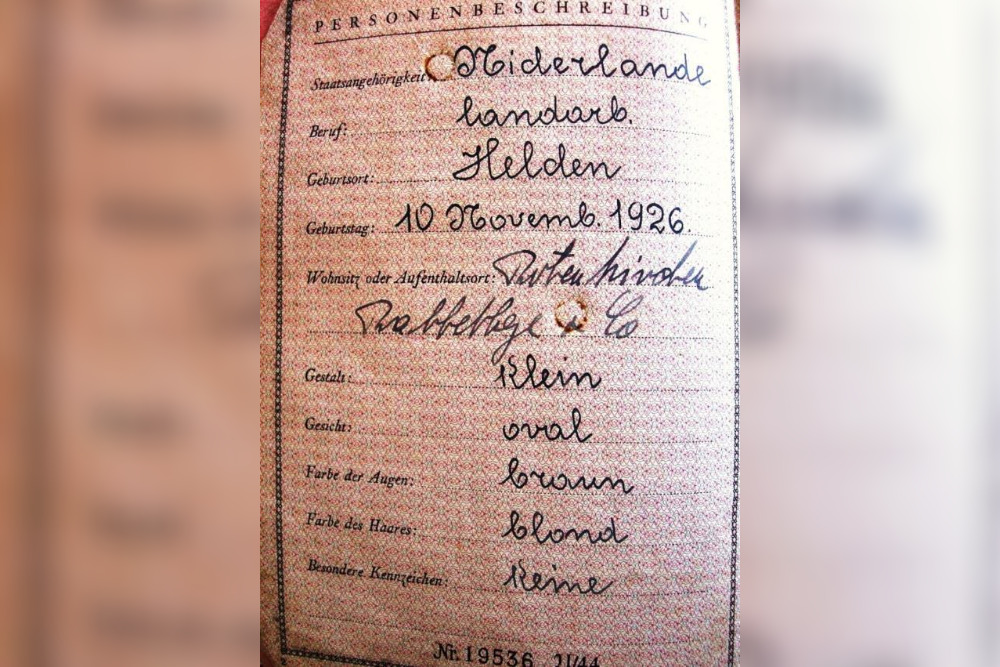 PERSONENBESCHREIBUNG
Staatsangehörigkeit Niderlande
Beruf: landarb.
Geburtsort: Helden
Geburtstag: 10 Novemb. 1926.
Wohnsitz oder Aufenthaltsort:
& Co
Gestalt: Klein
Gesicht: oval
Farbe der Augen: braun
Farbe des Haares: blond
Besondere Kennzeichen: Keine
Nr. 19536